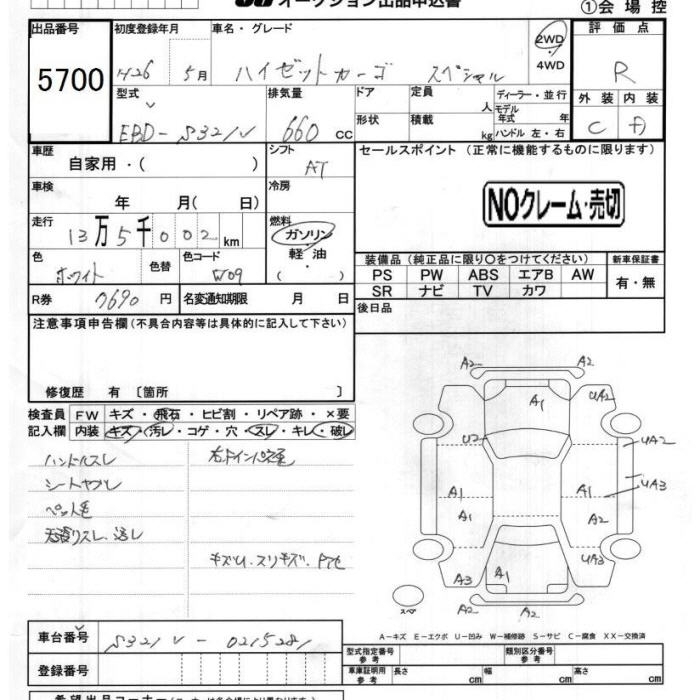 オークション出品申込書
①会場控
出品番号 初度登録年月 車名・グレード 評価点
5700 H26 5月 ハイゼットカーゴ スペシャル 2WD 4WD R
型式 排気量 ドア 定員 人 ディーラー・並行 外装 内装
EBD-S321V 660 cc 形状 積載 kg モデル年式 年 ハンドル 左・右 C
車歴 シフト セールスポイント (正常に機能するものに限ります)
自家用・( ) AT
車検 冷房
年 月( 日) NOクレーム・売切
走行 燃料
13万5千002km ガソリン
軽油
色 色替 色コード ( )
ホワイト W09
装備品 (純正品に限り○をつけてください) 新車保証書
PS PW ABS エアB AW 有・無
SR ナビ TV カワ
R券 7690円 名変通知期限 月 日
後日品
注意事項申告欄(不具合内容等は具体的に記入して下さい)
修復歴 有 〔箇所 〕
検査員 FW キズ・飛石・ヒビ割・リペア跡・×要
記入欄 内装 キズ・汚レ・コゲ・穴・スレ・キレ・破レ
ハンドルスレ
シートヤブレ
ペット毛
天張りスレ、汚レ
キズU、スリキズ、
A2 A2
A1 UA2
U2 UA2
A1 A1 UA3
A1 A2
UA3
A3 A1
スペア A2 A2
A-キズ E-エクボ U-凹み W-補修跡 S-サビ C-腐食 XX-交換済
車台番号 S321V-0215281
型式指定番号 参考 類別区分番号 参考
登録番号 車庫証明用 参考 長さ cm 幅 cm 高さ cm
希望出品コーナー